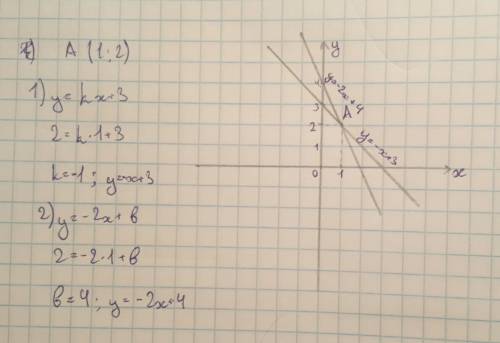 A (1; 2)
1) y = kx+3
2 = k·1+3
k=-1; y=-x+3
2) y = -2x + b
2 = -2·1+b
b = 4; y = -2x+4
y
y=-2x+4
4
3
A
2
y=-x+3
1
0 1 x